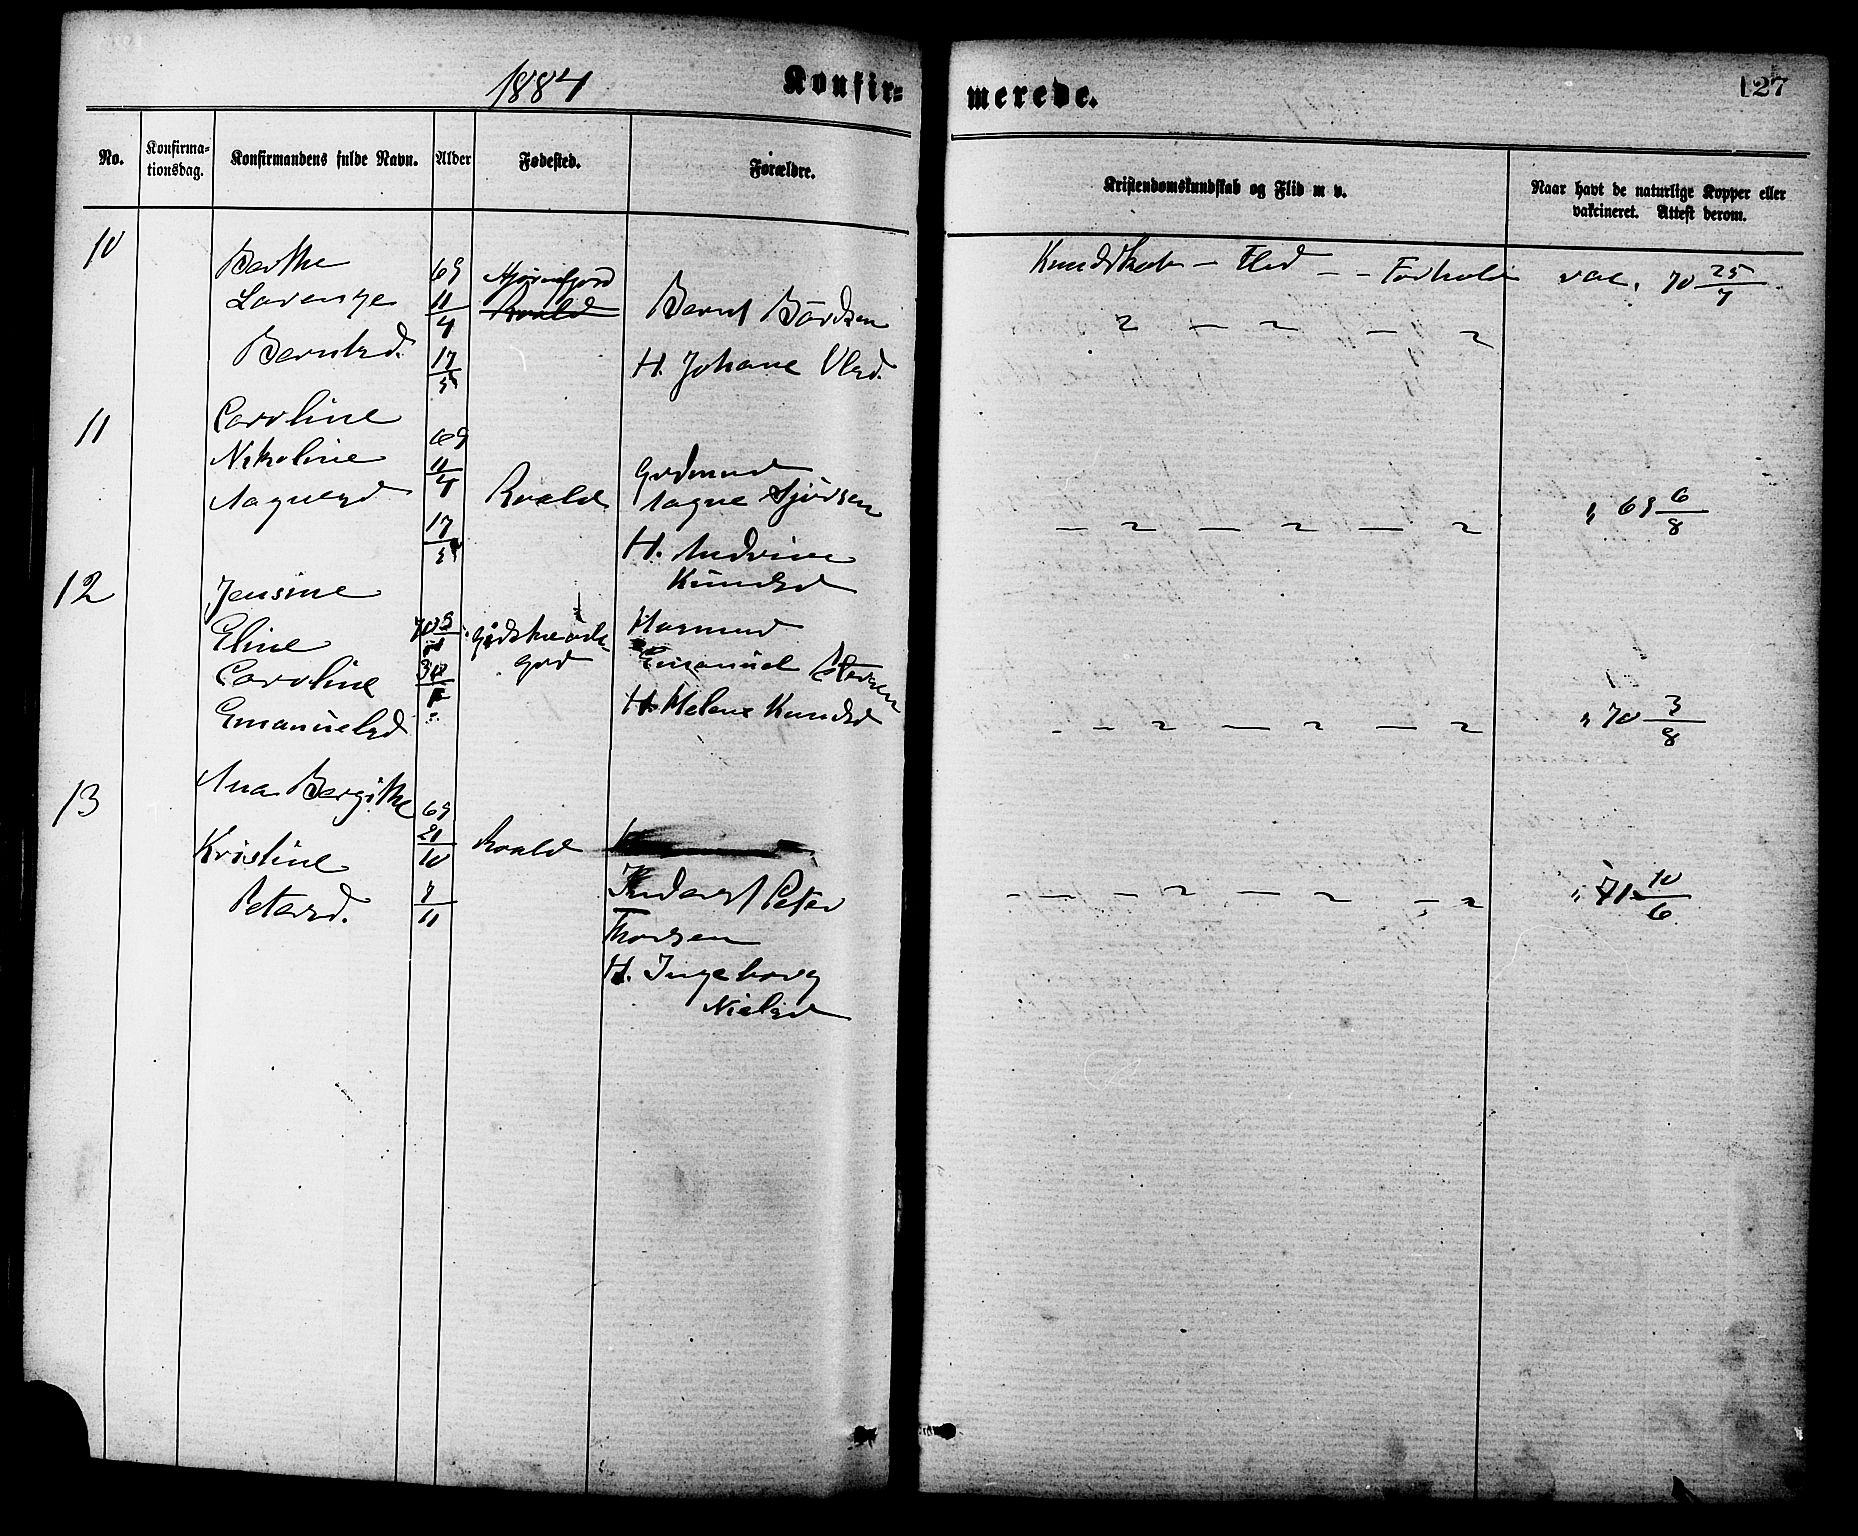 1884 Konfir=
merede. 127
No. Konfirma-
tionsdag. Konfirmandens fulde Navn. Alder Fødested. Forældre.
Kristendomskundskab og Flid m v. Naar havt de naturlige Kopper eller
vakcineret. Attest derom.
10
Berthe
Lovense
Berntsd.
69
11/4
17/5
Roald
Bernt Bårdsen
H. Johane Olsd.
Kundskab - Flid - - Forhold vac. 70 25/7
2 — 2 — 2
11
Caroline
Nikoline
Aagnesd
69
11/4
17/5
Roald
Gudmund
Aagne Sjursen
H. Andrine
Knudsd
— 2 — 2 — 2 " 69 6/8
12
Jensine
Eline
Caroline
Emanuelsd
Rasmus
Emanuel Petersen
H. Helene Knudsd
- — 2 — 2 — 2 " 70 3/8
13
Ana Bergithe
Kristine
Petersd.
69
21/10
7/11
Roald
Peter
Thorsen
H. Ingeborg
Nielsd
- — - 2 — 2 - 2 " 71 10/6